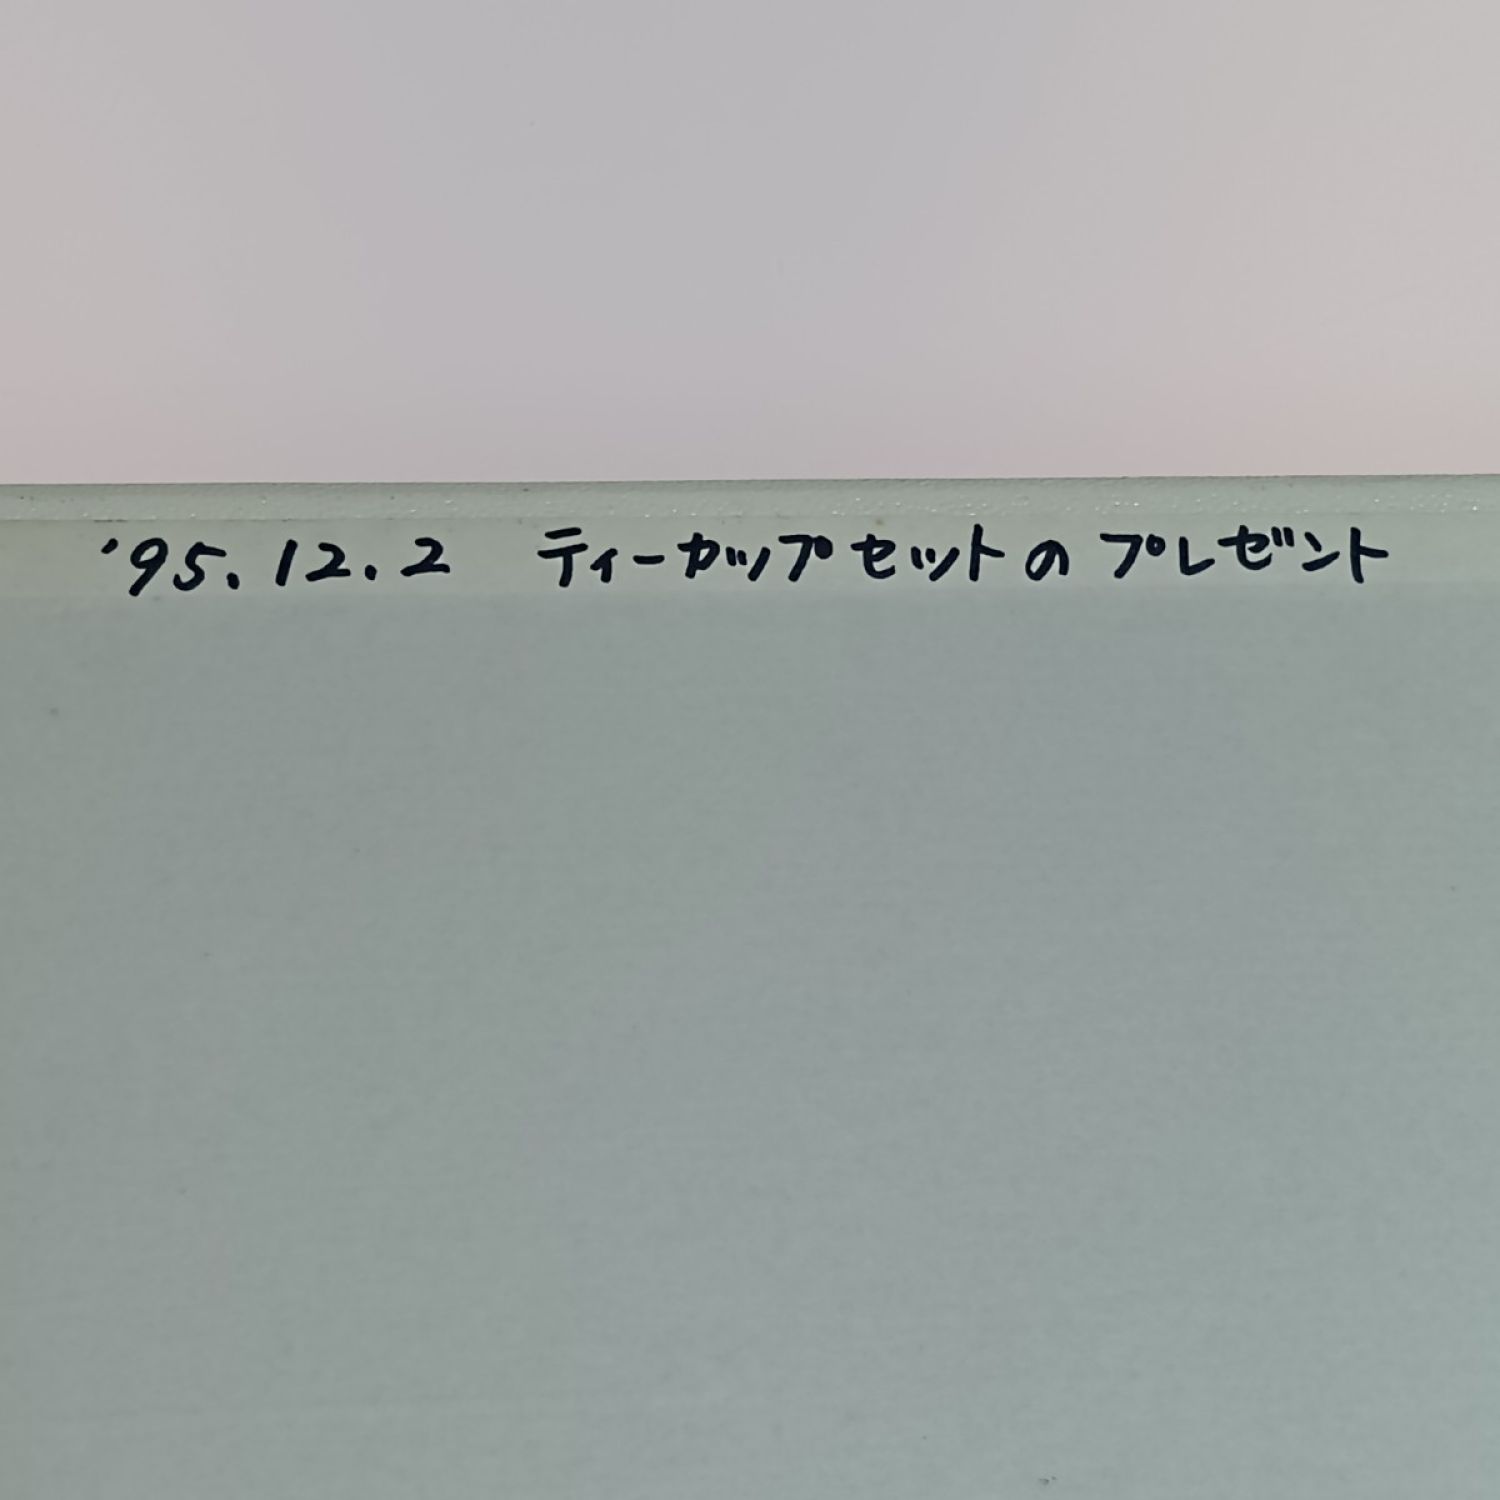 '95.12.2 ティーカップセットのプレゼント